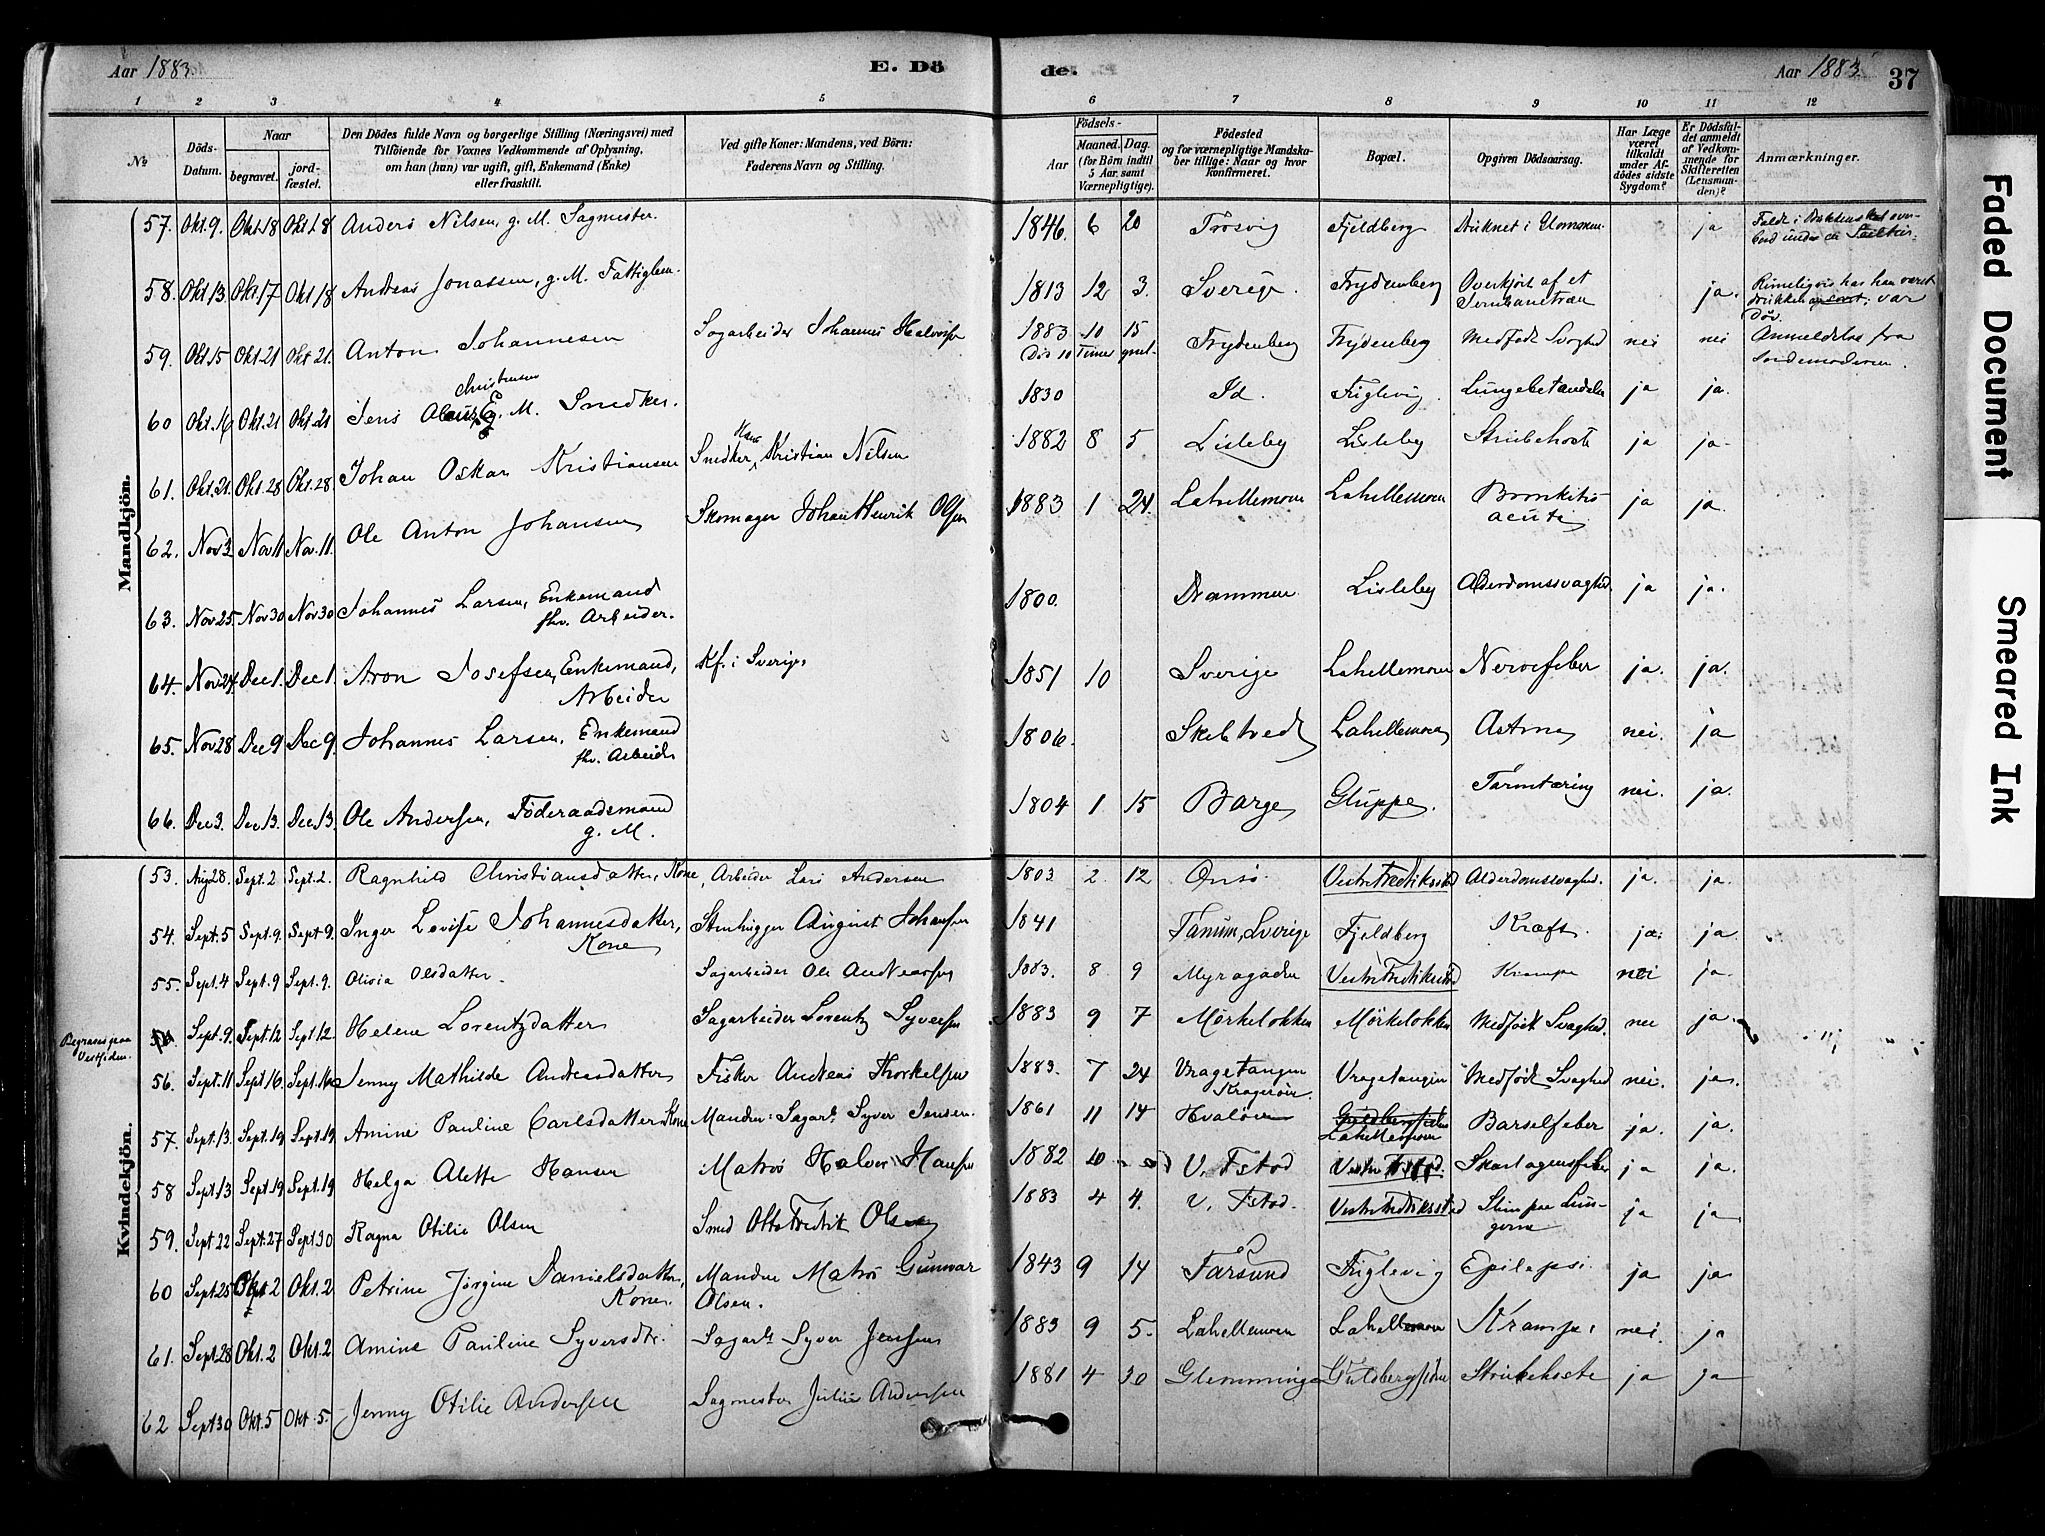 Aar 1883. E. Dö de. Aar 1883. 37
1 2 3 4 5 6 7 8 9 10 11 12
№
Döds-Datum.
Naar
begravet.
jord-fæstet.
Den Dödes fulde Navn og borgerlige Stilling (Næringsvei) med
Tilföiende for Voxnes Vedkommende af Oplysning,
om han (hun) var ugift, gift, Enkemand (Enke)
eller fraskilt.
Ved gifte Koner: Mandens, ved Börn:
Faderens Navn og Stilling.
Födsels-
Aar
Maaned. Dag.
(for Börn indtil
5 Aar samt
Værnepligtige).
Födested
og for værnepligtige Mandska-
ber tillige: Naar og hvor
konfirmeret.
Bopæl.
Opgiven Dödsaarsag.
Har Læge
været
tilkaldt
under Af-
dödes sidste
Sygdom?
Er Dödsfal-
det anmeldt
af Vedkom-
mende for
Skifteretten
(Lensman-
den)?
Anmærkninger.
Mandkjön.
57. Okt. 9. Okt 18 Okt 18 Anders Nilsen, g. M. Sagmester. 1846. 6 20 Trosvig Fjeldberg Druknet i Glommen. ja
58. Okt 13. Okt 17 Okt 18 Andreas Jonassen, g. M. Fattiglem. 1813 12 3. Sverige. Frydenberg Overkjørt af et Jernbanetræn ja. Rimeligvis har han været drukken; var Døv.
59. Okt 15 Okt 21 Okt 21. Anton Johannesen Sagarbeider Johannes Halvorsen 1883 10 15 Død 10 Timer gml. Frydenberg Frydenberg Medfødt Svaghed nei nei Anmeldelse fra Jordemoderen.
60 Okt. 16 Okt. 21 Okt. 21 Jens Christensen g. M. Snedker. 1830 Id. Trglevig Lungebetændelse ja ja.
61. Okt. 21. Okt. 28 Okt. 28 Johan Oskar Kristiansen Snedker Hans Kristian Nilsen 1882 8 5 Lisleby Lisleby Strubehoste ja ja.
62. Nov 3. Nov 11 Nov. 11. Ole Anton Johansen Skomager Johan Henrik Olsen 1883 1 24. Lahellemoen Lahellemoen Bronkitis acuti ja ja.
63. Nov 25 Nov 30 Nov 30 Johannes Larsen, Enkemand fhv. Arbeider. 1800. Drammen Lisleby Alderdomssvaghed. ja ja.
64. Nov 24 Dec 1. Dec 1. Aron Josefsen, Enkemand, Arbeider Kf. i Sverige 1851 10 Sverige Lahellemoen Nervefeber ja. ja.
65. Nov 28 Dec 9 Dec 9. Johannes Larsen, Enkemand fhv. Arbeider 1806. Skebtved Lahellemoen Astma nei. ja
66. Dec 3. Dec 13. Dec 13. Ole Andersen, Föderaadsmand g. M. 1804 1 15 Borge Gluppe. Tarmtæring nei. ja.
Kvindekjön.
53. Aug 28. Sept. 2 Sept. 2. Ragnhild Christiansdatter, Kone, Arbeider Lars Andersen 1803 2 12 Onsö. Vestre Fredriksstad Alderdomssvaghed. ja. ja.
54. Sept. 5 Sept. 9. Sept 9. Inger Lovise Johannesdatter, Kone Stenhugger August Johansen 1841 Tanum, Sverige Fjeldberg Kræft. ja. ja
55. Sept. 4 Sept. 9 Sept. 9. Olivia Olsdatter. Sagarbeider Ole Andreassen 1883. 8 9 Myragaden Vestre Fredriksstad Krampe nei ja.
Begravet paa Vestsiden. Sept. 9. Sept 12 Sept 12. Helene Lorentzdatter Sagarbeider Lorentz Syversen 1883 9 7 Mørkelokken Mørkelokken Medfødt Svaghed. nei ja.
56. Sept. 11 Sept 16. Sept. 16 Jenny Mathilde Andreasdatter Fisker Andreas Thorkelsen 1883. 7 24 Vragetangen Kragerøen. Vragetangen Medfødt Svaghed nei. ja.
57. Sept. 13. Sept. 19 Sept. 19 Amine Pauline Carlsdatter Kone Manden: Sagarb. Syver Jensen. 1861 11 14 Hvaløerne Lahellemoen Barselfeber ja. ja.
58 Sept. 13 Sept 19 Sept. 19 Helga Alette Hansen Matros Halvor Hansen 1882 10 V. Fstad Vestre Fstad. Skarlagensfeber ja ja.
59. Sept 22 Sept. 27 Sept 30 Ragna Otilie Olsen Smed Otto Fredrik Olsen 1883 4 4. V. Fstad. Vestre Fredriksstad Slim paa Lungerne ja ja
60 Sept 25 Okt 2 Okt. 2 Petrine Jörgine Danielsdatter, Kone. Manden Matros Gunnar Olsen. 1843 9 14 Farsund Trglevig Epilepsi ja ja
61. Sept. 28 Okt. 2 Okt. 2 Amine Pauline Syversdtr. Sagarb. Syver Jensen 1883 9 5. Lahellemoen Lahellemoen Krampe nei. ja
62 Sept 30 Okt. 5 Okt. 5. Jenny Otilie Andersen Sagmester Julius Andersen 1881 4 30 Glemminge Guldbergsiden Strubehoste ja ja
Faded Document
Smeared Ink